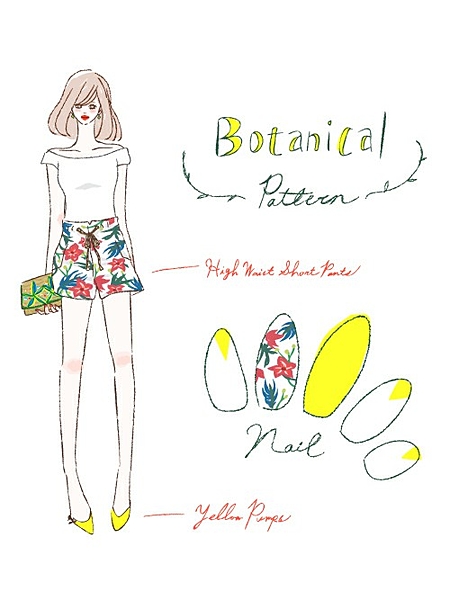 Botanical
Pattern
High Waist Short Pants
Nail
Yellow Pumps